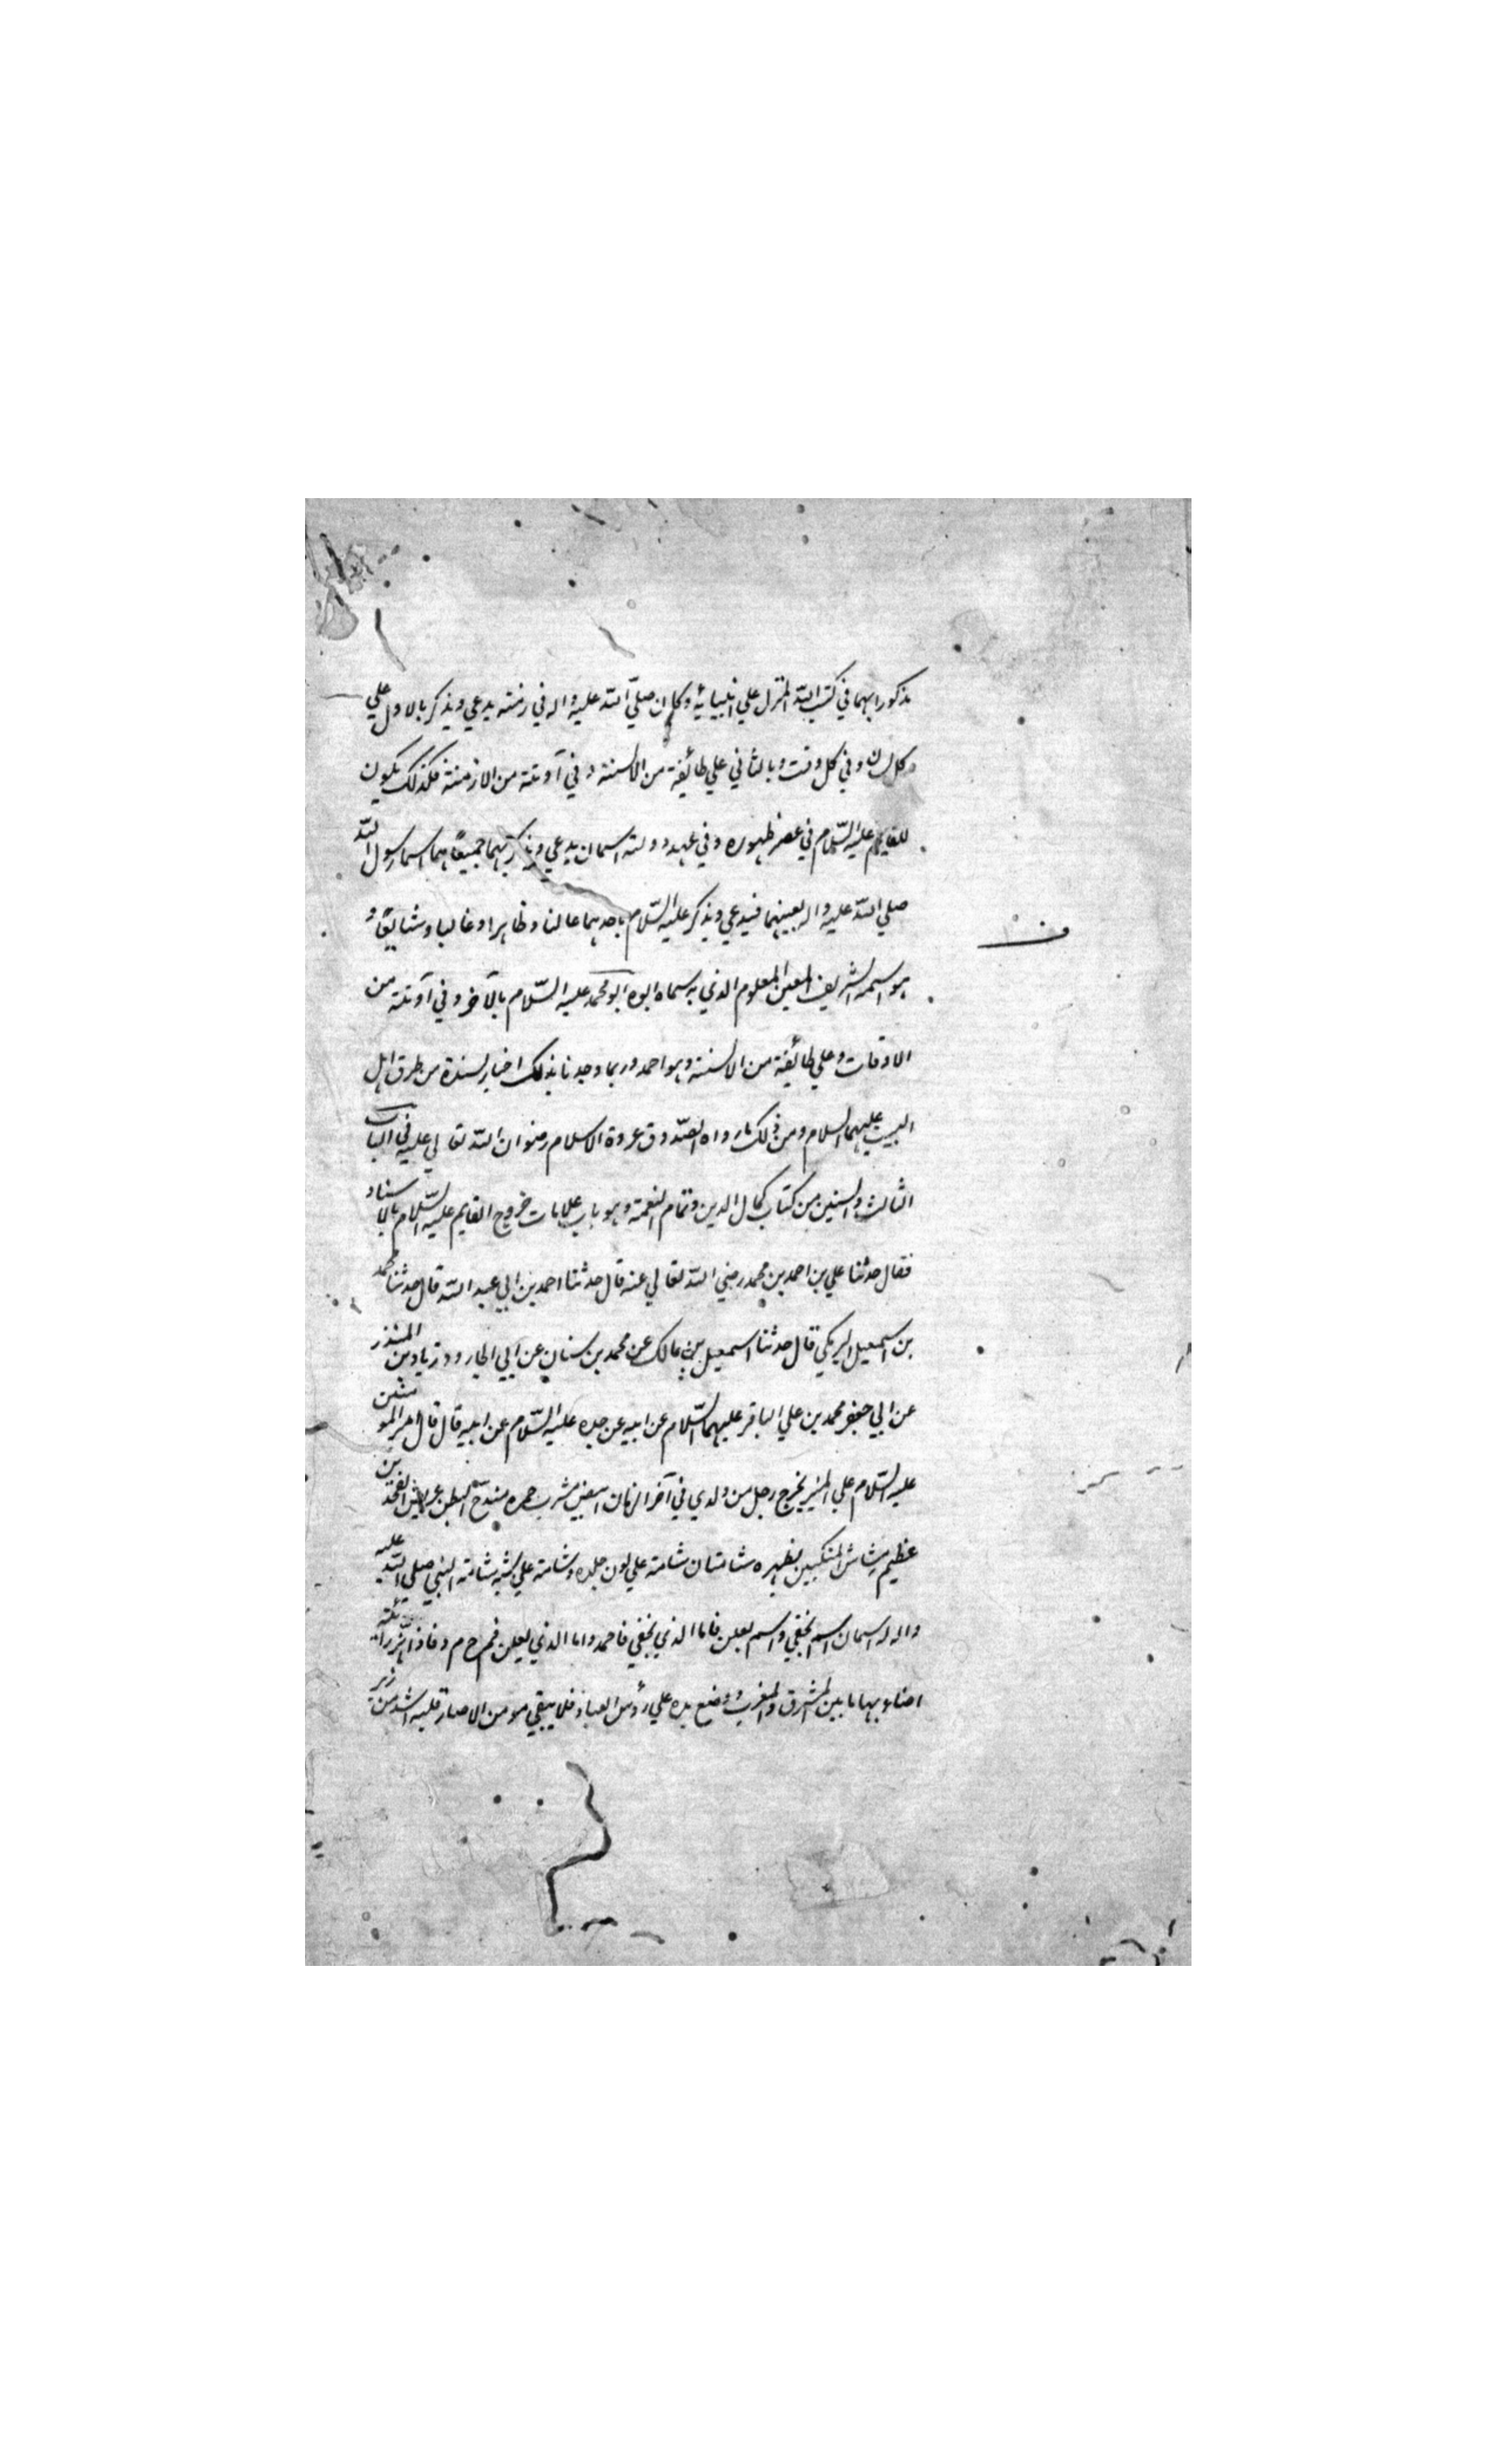 مذكورا بهما في كتب الله المنزل علي انبيائه وكان صلي الله عليه واله في زمنه يدعي ويذكر بالاول علي
كل لسان وفي كل وقت وبالثاني علي طائفة من الالسنة وفي آونة من الازمنة فكذلك يكون
للقايم عليه السلام في عصر ظهوره وفي عهد دولته اسمان يدعي ويذكر بهما جميعا هما اسما رسول الله
صلي الله عليه واله بعينهما فيدعي ويذكر عليه السلام باحدهما عالنا وظاهرا وغالبا وشايعا و
هو اسمه الشريف المعين المعلوم الذي به سماه ابوه ابو محمد عليه السلام بالآخر وفي آونة من
الاوقات وعلي طائفة من الالسنة وهو احمد وربما وجدنا بذلك اخبار مسندة من طرق اهل
البيت عليهم السلام ومن ذلك ما رواه الصدوق عروة الاسلام رضوان الله تعالي عليه في الباب
الثالث والستين من كتاب كمال الدين وتمام النعمة وهو باب علامات خروج القايم عليه السلام بالاسناد
فقال حدثنا علي بن احمد بن محمد رضي الله تعالي عنه قال حدثنا احمد بن ابي عبد الله قال حدثنا محمد
بن اسمعيل البرمكي قال حدثنا اسمعيل بن مالك عن محمد بن سنان عن ابي الجارود زياد بن المنذر
عن ابي جعفر محمد بن علي الباقر عليهما السلام عن ابيه عن جده عليه السلام عن ابيه قال قال امير المومنين
عليه السلام علي المنبر يخرج رجل من ولدي في آخر الزمان ابيض مشرب حمرة مندح البطن عريض الفخذين
عظيم مشاش المنكبين بظهره شامتان شامة علي لون جلده وشامة علي شبه شامة النبي صلي الله عليه
واله له اسمان اسم يخفي واسم يعلن فاما الذي يخفي فاحمد واما الذي يعلن فم ح م د فاذا هز رايته
اضاء بها ما بين المشرق والمغرب ووضع يده علي رؤس العباد فلا يبقي مومن الا صار قلبه اشد من زبر